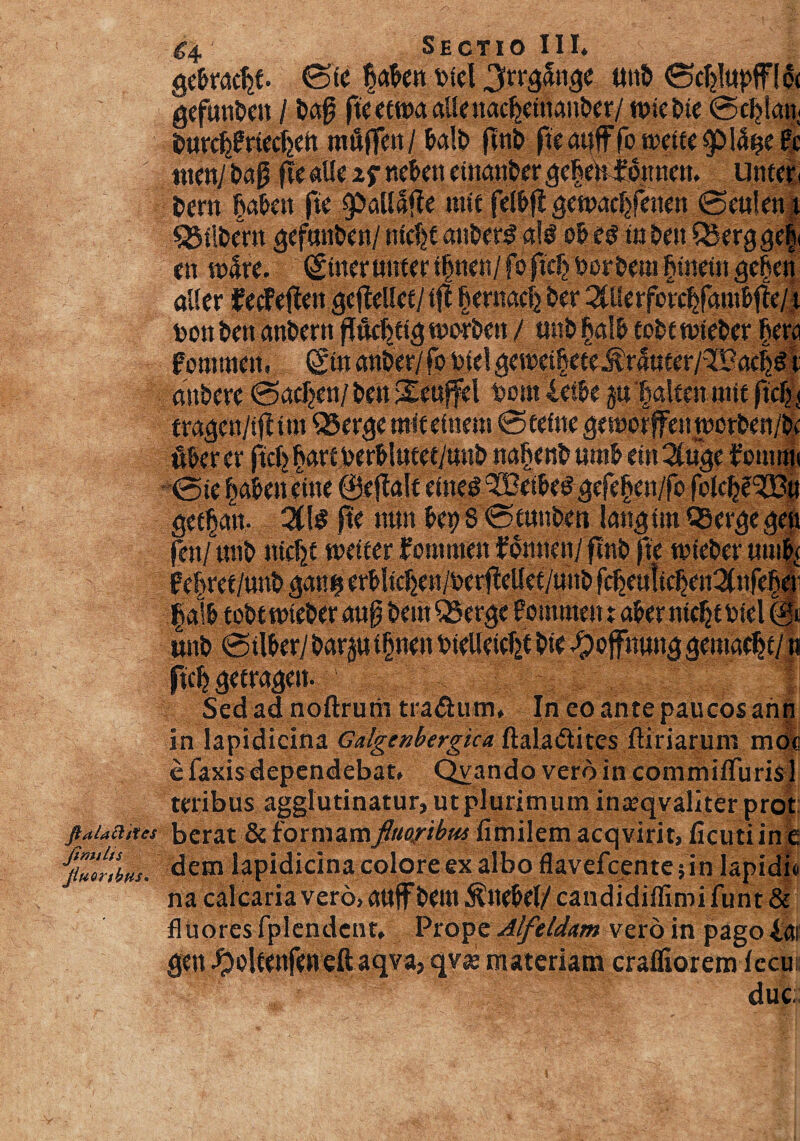 64 SECTIO III.
gebracht. Sie haben viel Irrgänge und Schlupfflöc
gefunden / daß sie etwa alle nacheinander/ wie die Schlan
durchkriechen müssen/ bald sind sie auff so weite Pläße ke
men/ daß sie alle 25 neben einander gehen können. Unter
dern haben sie Palläste mit selbst gewachsenen Seulen
Bildern gefunden/ nicht anders als ob es in den Berg geh
en wäre. Einer unter ihnen/ so sich vor dem hinein gehen
aller keckesten gestellet/ ist hernach der Allerforchsambste/
von den andern flüchtig worden / und halb todt wieder hera
kommen. Ein ander/ so viel geweihete Kräuter/Wachs
andere Sachen/ den Teuffel vom Leibe zu halten mit sich
tragen/ist im Berge mit einem Steine geworffen worden/
über er sich hart verblutet/und nahend umb ein Auge komm
Sie haben eine Gestalt eines Weibes gesehen/so solch
gethan. Als sie nun bey 8 Stunden lang im Berge ge
sen/ und nicht weiter kommen können/ sind sie wieder umb
kehret/und gantz erblichen/verstellet/und scheulichen Anseh
halb todt wieder auß dem Berge kommen: aber nicht viel
und Silber/ darzu ihnen vielleicht die Hoffnung gemacht/
sich getragen.
Sed ad nostrum tractum. In eo ante paucos ann
in lapidicina Galgenbergica stalactites stiriarum mo
è saxis dependebat. Qvando verò in commissuris
teribus agglutinatur, ut plurimum inæqvaliter prot
stalactites berat & formam fluoribus similem acqvirit, sicuti in
similis
fluoribus. dem lapidicina colore ex albo flavescente; in lapidi
na calcaria verò, auff dem Knebel/ candidissimi sunt &
fluores splendent. Prope Alfeldam verò in pago
gen Holtensen est aqva, qvæ materiam crassiorem secu
duc